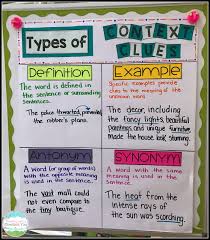 Types of CONTEXT
CLUES
Definition
The word is defined in
the sentence or surrounding
sentences.
The police thwarted, preventing
the robber's plans.
Example
Specific examples provide
clues to the meaning of the
unknown word.
The decor, including
the fancy lights, beautiful
paintings and unique furniture,
made the house look stunning.
Antonym
A word (or group of words) with
the opposite meaning is
used in the sentence.
The vast mall could
not even compare to
the tiny boutique.
SYNONYM
A word with the same
meaning is used in the
sentence.
The heat from the
intense rays of
the sun was scorching.